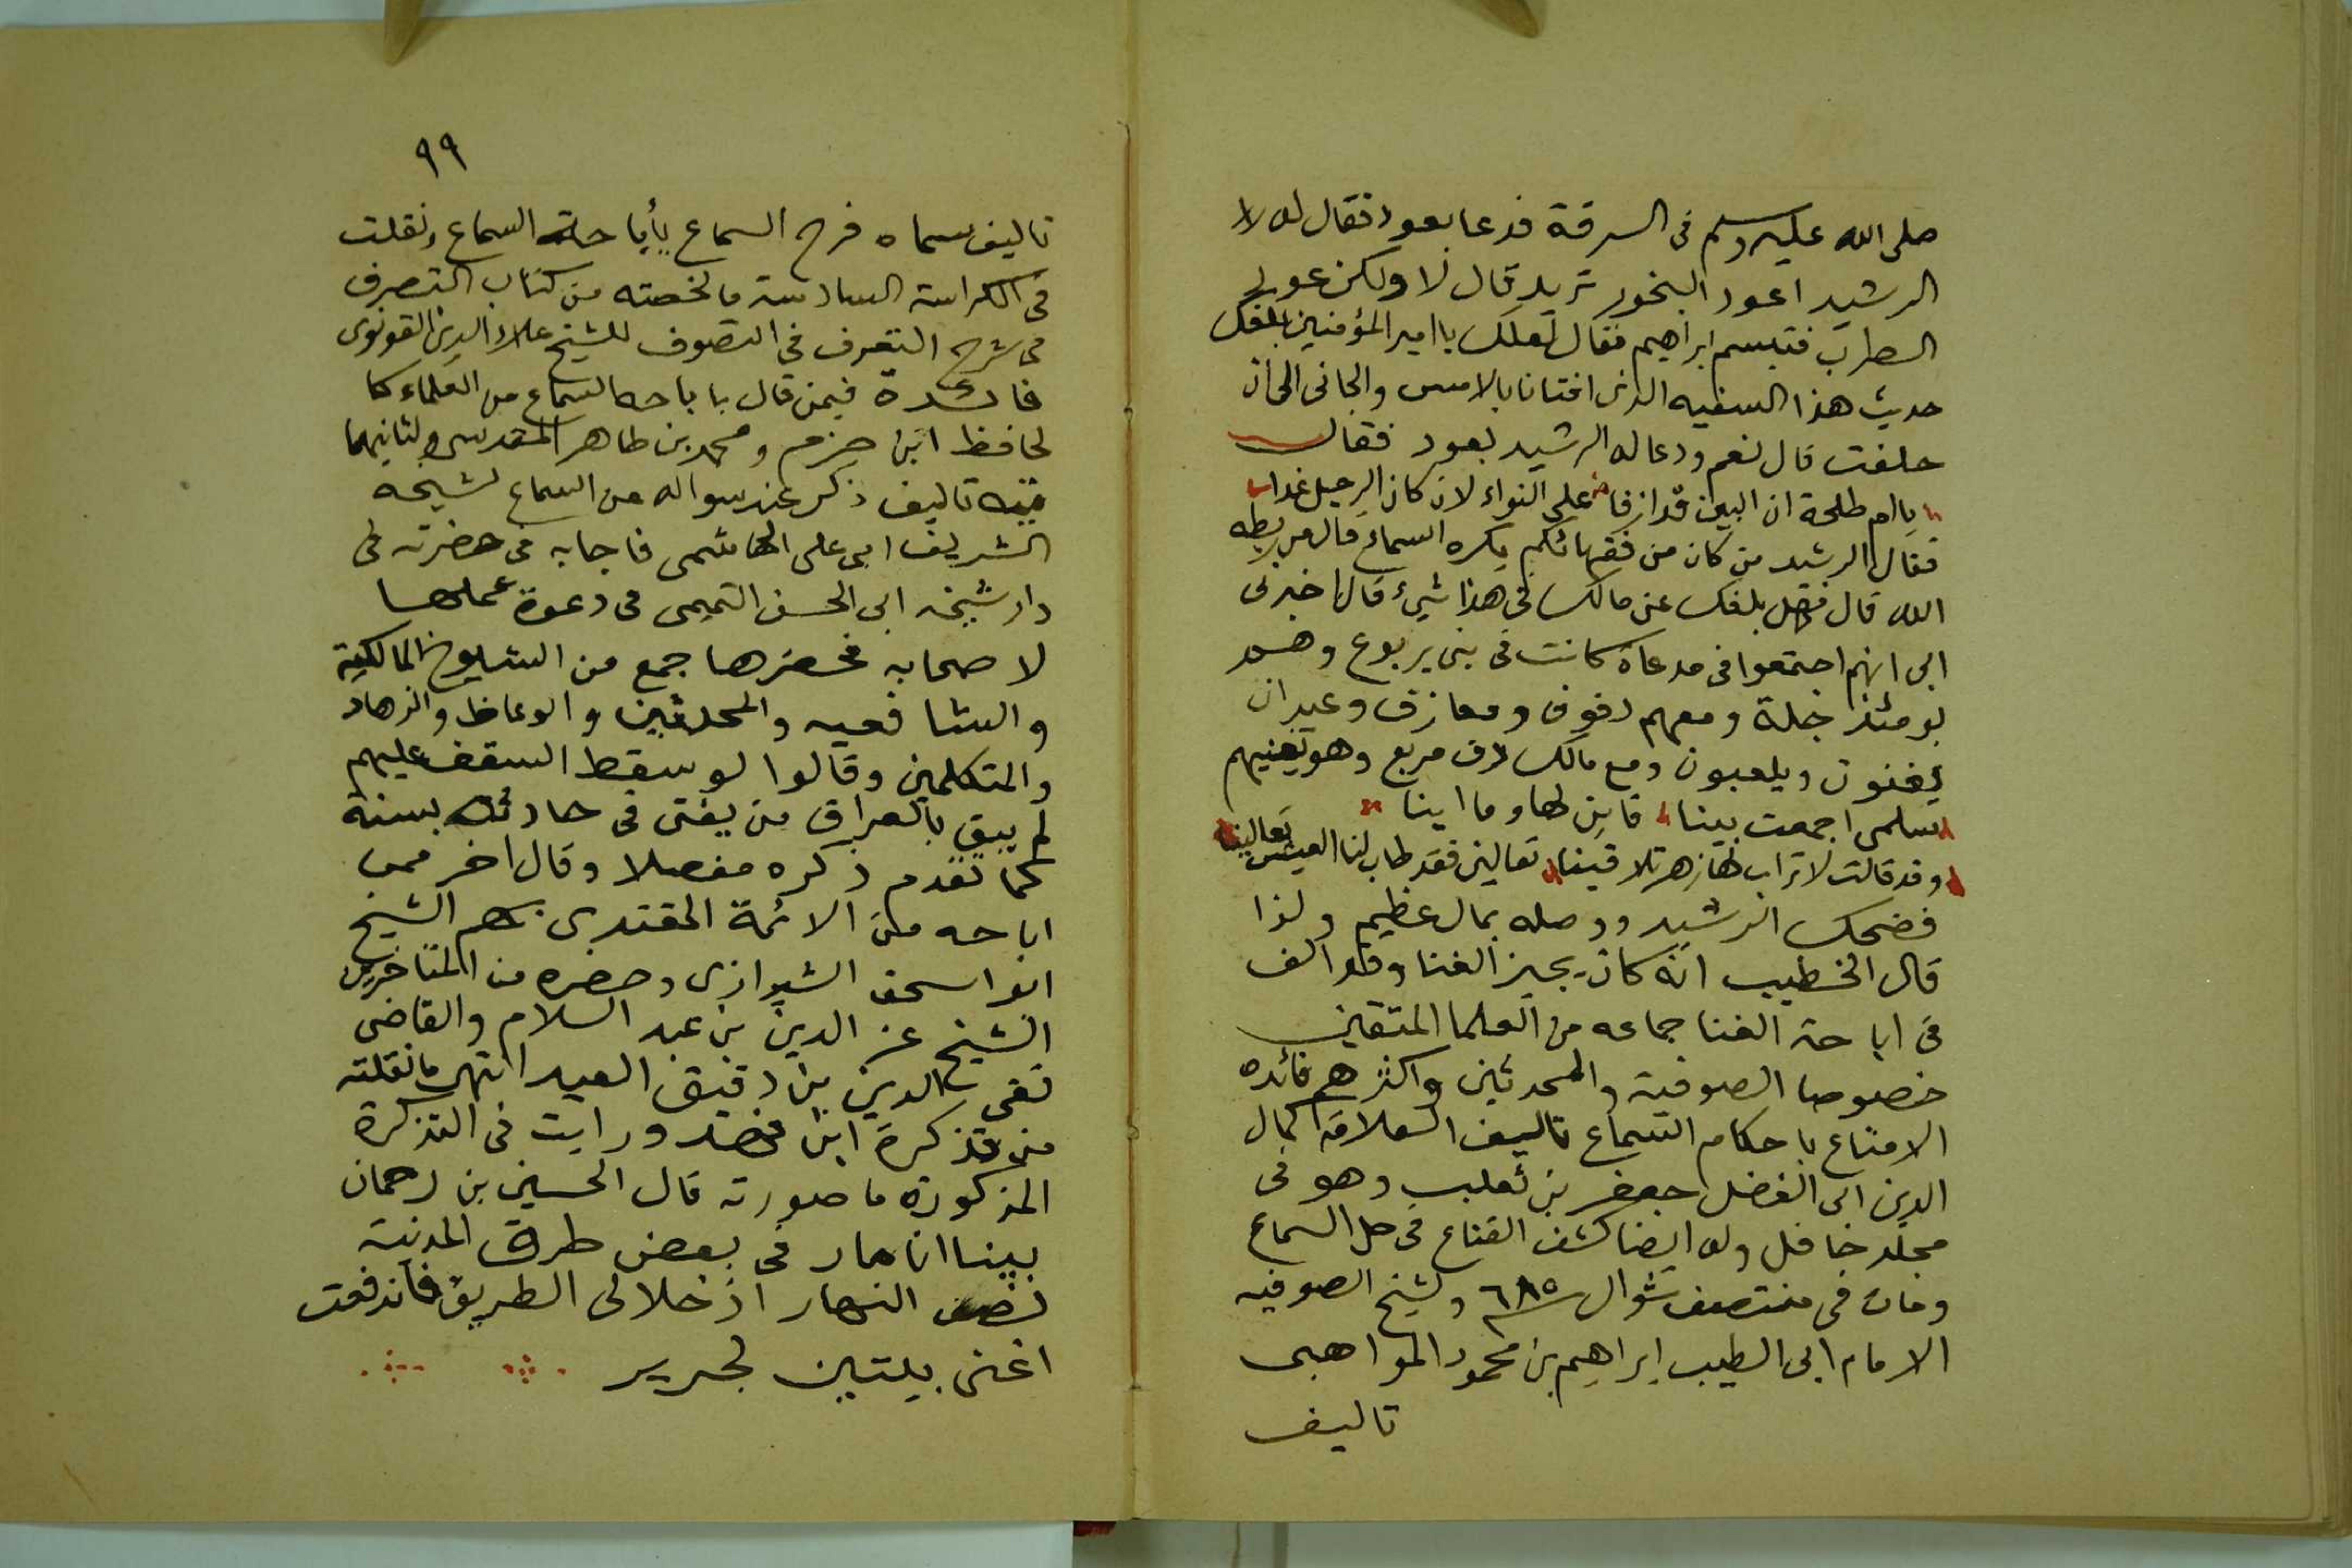 صلى الله عليه وسلم فى السرقة فدعا بعود فقال له لا
الرشيد اعود البخور تريد قال لا ولكن عود
الطرب فتبسم ابراهيم فقال لعلك يا امير المؤمنين بلغك
حديث هذا السفيه الذى اذانا بالامس والجانى الى ان
حلفت قال نعم ودعا له الرشيد بعود فقال
يا ام طلحة ان البين قد ازفا على الثواء لان كان الرحيل غدا
فقال الرشيد من كان من فقهائكم يكره السماع قال من ربطه
الله قال فهل بلغك عن مالك فى هذا شيء قال اخبرنى
ابى انهم اجتمعوا فى مدعاة كانت فى بنى يربوع وهم
يومئذ جلة ومعهم دفوف ومعازف وعيدان
يغنون ويلعبون ومع مالك دف مربع وهو يغنيهم
سلمى اجمعت بينا فاين لها وما اينا
وقد قالت لاتراب لها زهر تلاقينا تعالين فقد طاب لنا العيش تعالينا
فضحك الرشيد ووصله بمال عظيم ولذا
قال الخطيب انه كان يجيز الغنا وقد الف
فى اباحة الغنا جماعه من العلما المتقين
خصوصا الصوفية والمحدثين واكثرهم فائده
الامتاع باحكام السماع تاليف العلامة كمال
الدين ابى الفضل جعفر بن ثعلب وهو فى
مجلد حافل وله ايضا كشف القناع فى حل السماع
ومات فى منتصف شوال ٦٨٥ ولشيخ الصوفيه
الامام ابى الطيب ابراهيم بن محمود المواهبى
تاليف
٩٩
تاليف سماه فرح السماع بأباحة السماع ونقلت
فى الكراسة السادسة ما لخصته من كتاب التصرف
فى شرح التعرف فى التصوف للشيخ علاء الدين القونوى
فائدة فيمن قال باباحه السماع من العلماء كا
لحافظ ابن حزم ومحمد بن طاهر المقدسى ولثانيهما
فيه تاليف ذكر عند سواله عن السماع لشيخه
الشريف ابى على الهاشمى فاجابه فى حضرته فى
دار شيخه ابى الحسن التميمى فى دعوة عملها
لاصحابه فحضرها جمع من الشيوخ المالكية
والشافعيه والمحدثين والوعاظ والزهاد
والمتكلمين وقالوا لو سقط السقف عليهم
لم يبق بالعراق من يفتى فى حادثة بسنة
كما تقدم ذكره مفصلا وقال اخر ممن
اباحه من الائمة المقتدى بهم الشيخ
ابو اسحق الشيرازى وحضره من المتاخرين
الشيخ عز الدين بن عبد السلام والقاضى
تقى الدين بن دقيق العيد انتهى ما نقلته
من تذكرة ابن فهد ورايت فى التذكرة
المذكورة ما صورته قال الحسين بن رحمان
بينا انا مار فى بعض طرق المدنية
نصف النهار اذ خلا لى الطريق فاندفعت
اغنى بيتين لجرير